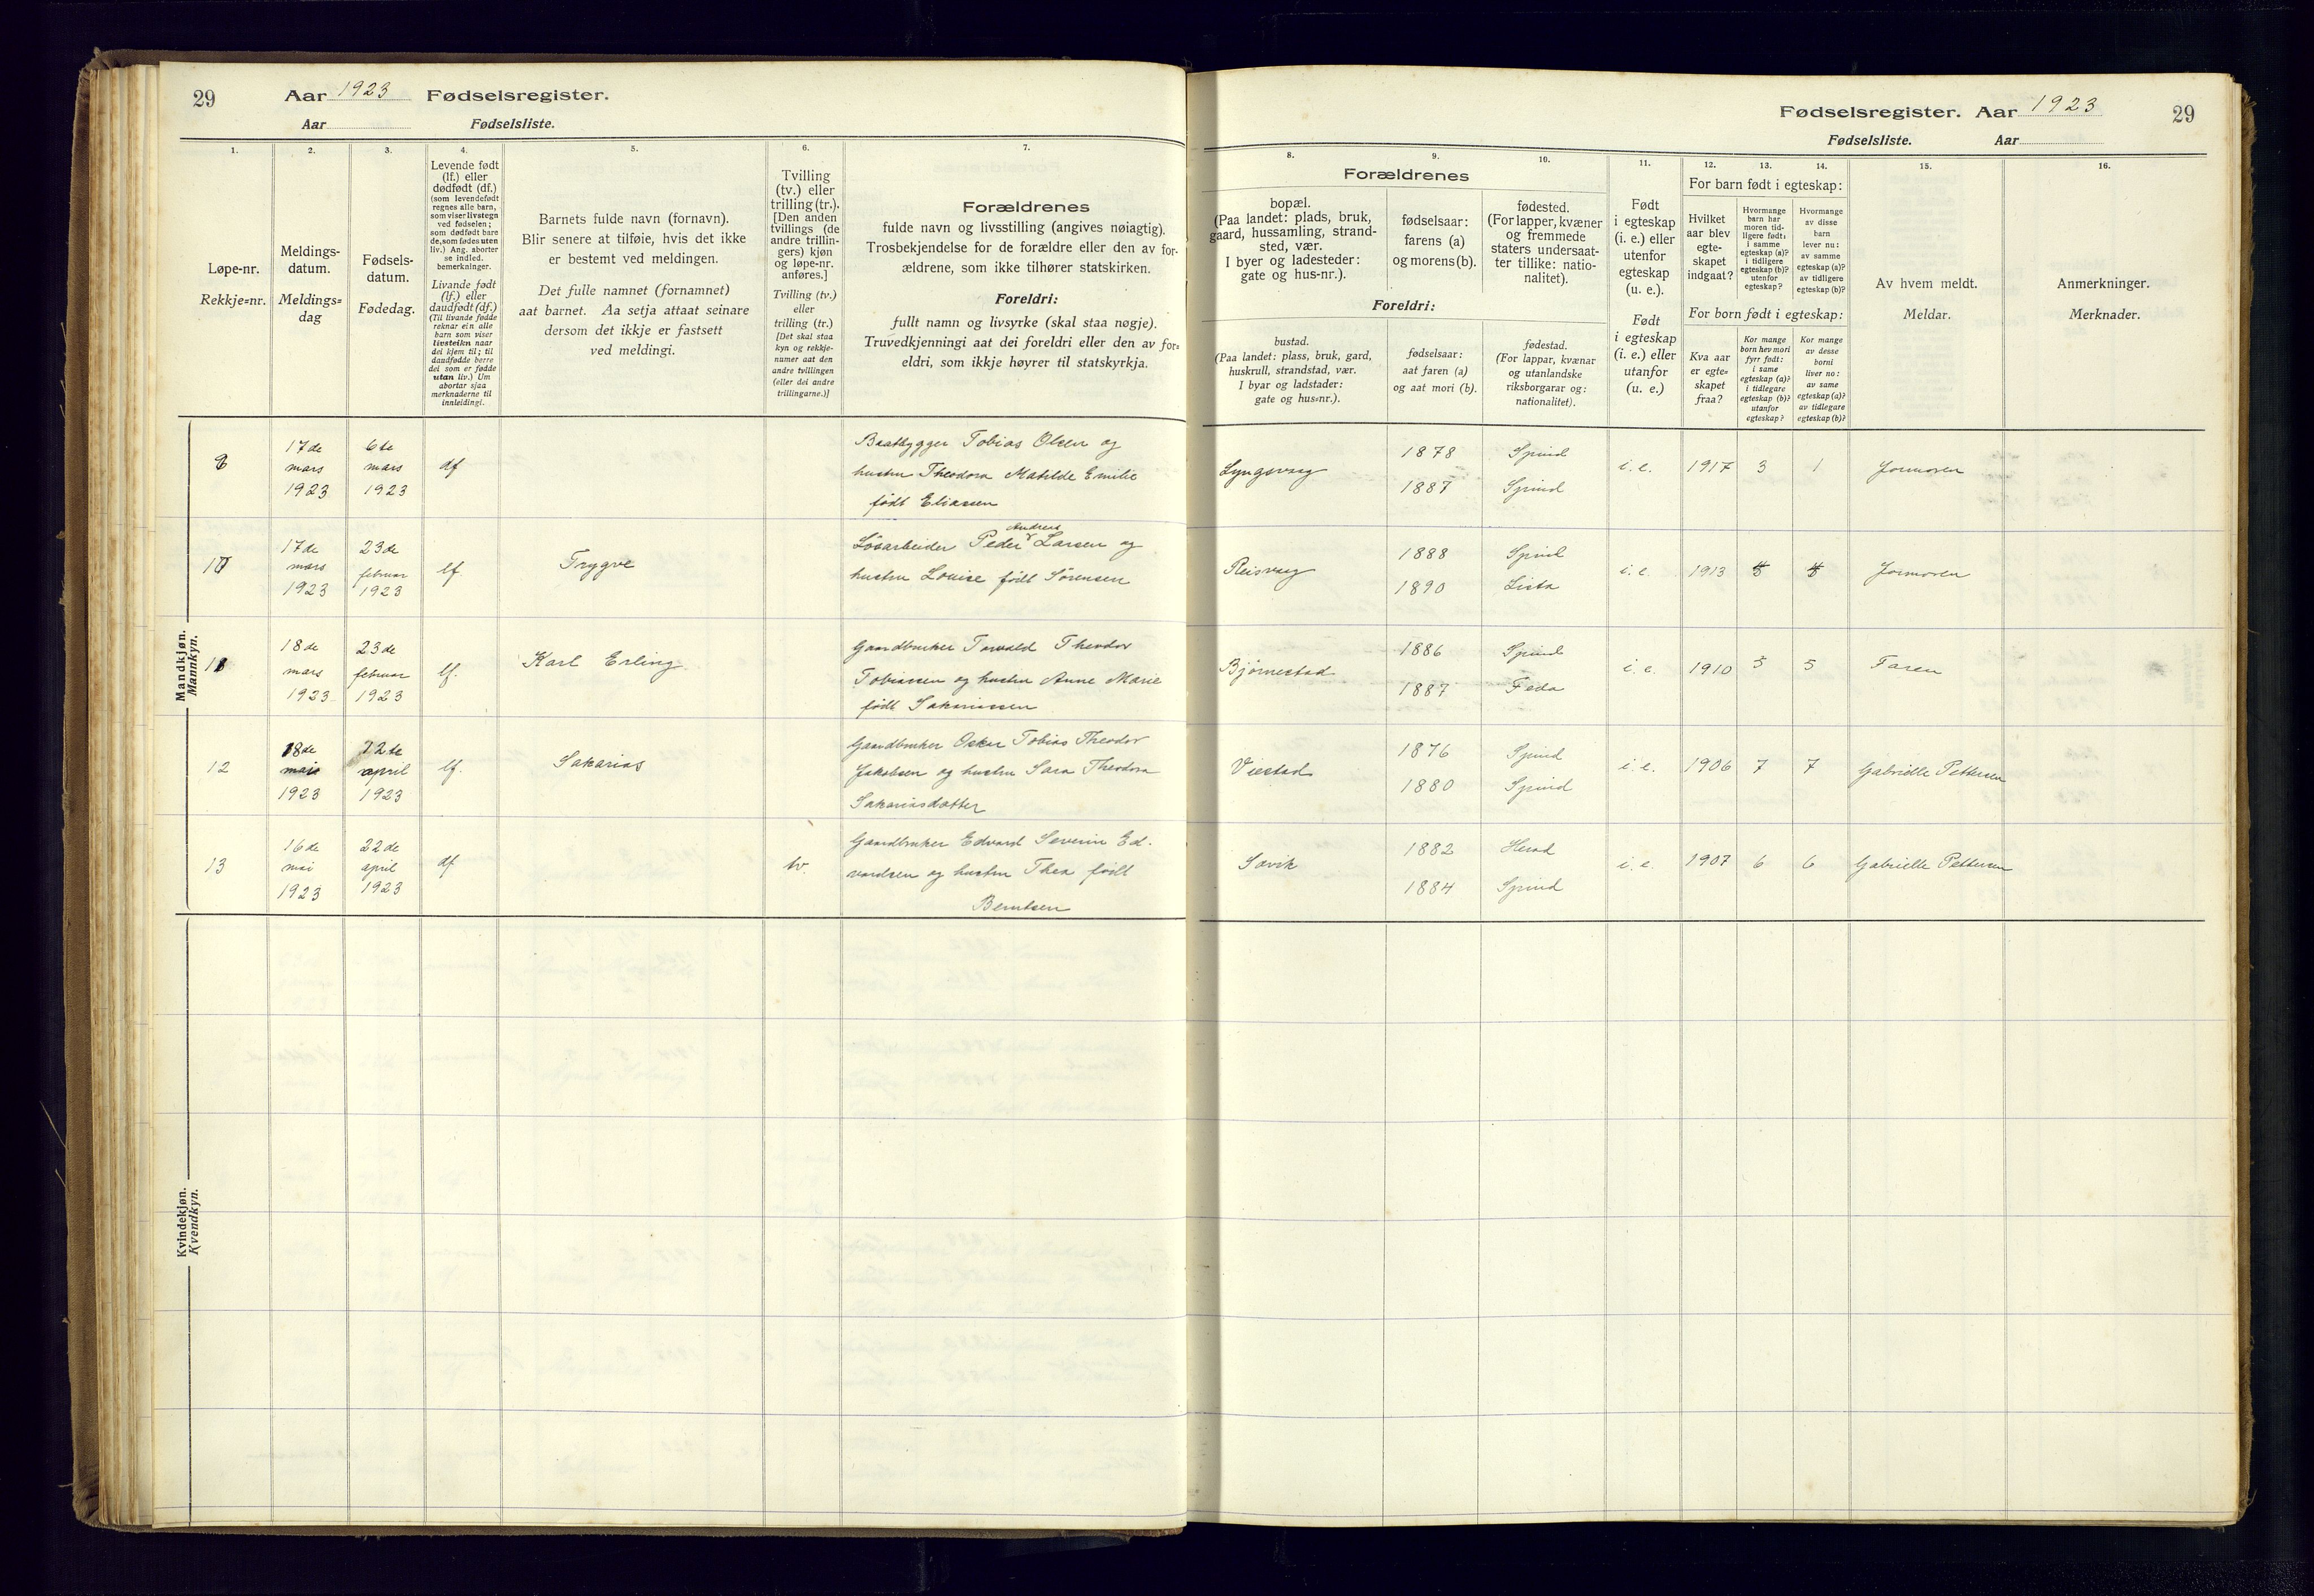 29
Aar 1923 Fødselsregister.
Aar Fødselsliste.
Fødselsregister. Aar 1923
29
Fødselsliste. Aar
1.
Løpe-nr.
Rekkje-nr.
2.
Meldings-
datum.
Meldings-
dag
3.
Fødsels-
datum.
Fødedag.
4.
Levende født
(lf.) eller
dødfødt (df.)
(som levendefødt
regnes alle barn,
som viser livstegn
ved fødselen;
som dødfødt bare
de, som fødes uten
liv.) Ang. aborter
se indled.
bemerkninger.
Livande født
(lf.) eller
daudfødt (df.)
(Til livande fødde
reknar ein alle
barn som viser
livsteikn naar
dei kjem til; til
daudfødde berre
dei som er fødde
utan liv.) Um
abortar sjaa
merknaderne til
innleidingi.
5.
Barnets fulde navn (fornavn).
Blir senere at tilføie, hvis det ikke
er bestemt ved meldingen.
Det fulle namnet (fornamnet)
aat barnet. Aa setja attaat seinare
dersom det ikkje er fastsett
ved meldingi.
6.
Tvilling
(tv.) eller
trilling (tr.).
[Den anden
tvillings (de
andre trillin-
gers) kjøn
og løpe-nr.
anføres.]
Tvilling (tv.)
eller
trilling (tr.)
[Det skal staa
kyn og rekkje-
numer aat den
andre tvillingen
(eller dei andre
trillingarne.)]
7.
Forældrenes
fulde navn og livsstilling (angives nøiagtig).
Trosbekjendelse for de forældre eller den av for-
ældrene, som ikke tilhører statskirken.
Foreldri:
fullt namn og livsyrke (skal staa nøgje).
Truvedkjenningi aat dei foreldri eller den av for-
eldri, som ikkje høyrer til statskyrkja.
Forældrenes
8.
bopæl.
(Paa landet: plads, bruk,
gaard, hussamling, strand-
sted, vær.
I byer og ladesteder:
gate og hus-nr.).
9.
fødselsaar:
farens (a)
og morens (b).
10.
fødested.
(For lapper, kvæner
og fremmede
staters undersaat-
ter tillike: natio-
nalitet).
Foreldri:
bustad.
(Paa landet: plass, bruk, gard,
huskrull, strandstad, vær.
I byar og ladstader:
gate og hus-nr.).
fødselsaar:
aat faren (a)
og aat mori (b).
fødestad.
(For lappar, kvænar
og utanlandske
riksborgarar og:
nationalitet).
11.
Født
i egteskap
(i. e.) eller
utenfor
egteskap
(u. e.).
Født
i egteskap
(i. e.) eller
utanfor
(u. e.)
12.
13.
14.
For barn født i egteskap:
Hvilket
aar blev
egte-
skapet
indgaat?
Hvormange
barn har
moren tid-
ligere født:
i samme
egteskap (a)?
i tidligere
egteskap (b)?
utenfor
egteskap?
Hvormange
av disse
barn
lever nu:
av samme
egteskap (a)?
av tidligere
egteskap (b)?
For born født i egteskap:
Kva aar
er egte-
skapet
fraa?
Kor mange
born hev mori
fyrr født:
i same
egteskap (a)?
i tidlegare
egteskap (b)?
utanfor
egteskap?
Kor mange
av desse
borni
liver no:
av same
egteskap (a)?
av tidlegare
egteskap (b)?
15.
Av hvem meldt.
Meldar.
16.
Anmerkninger.
Merknader.
Mandkjøn.
Mannkyn.
17de
mars
1923
6te
mars
1923
df
Baatbygger Tobias Olsen og
hustru Theodora Matilde Emilie
født Eliassen
Lyngsvaag
1878
1887
Spind
Spind
i. e.
1917
3
1
Jormoren
10
17de
mars
1923
23de
februar
1923
lf.
Trygve
Andreas
Løsarbeider Peder Larsen og
hustru Louise født Sørensen
Reisvaag
1888
1890
Spind
Lista
i. e.
1913
Jormoren
11
18de
mars
1923
23de
februar
1923
lf.
Karl Erling
Gaardbruker Torvald Theodor
Tobiassen og hustru Anne Marie
født Sakariassen
Bjørnestad
1886
1887
Spind
Feda
i. e.
1910
5
5
Faren
12
18de
mai
1923
22te
april
1923
lf.
Sakarias
Gaardbruker Oskar Tobias Theodor
Jakobsen og hustru Sara Theodora
Sakariasdatter
Viestad
1876
1880
Spind
Spind
i. e.
1906
7
7
Gabrielle Pettersen
13
16de
mai
1923
22de
april
1923
df
tv.
Gaardbruker Edvard Severin Ed-
vardsen og hustru Thea født
Berntsen
Sævik
1882
1884
Herad
Spind
i. e.
1907
6
6
Gabrielle Pettersen
Kvindekjøn.
Kvendkyn.